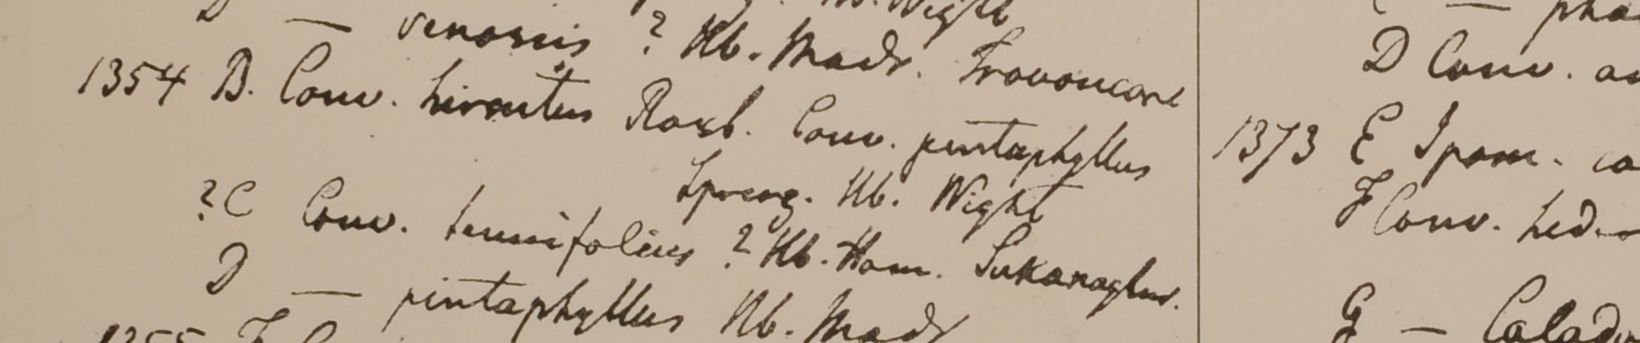 — venosus ? Hb. Madr. Travancore
1354 B. Conv. hirsutus Roxb. Conv. pentaphyllus
Spreng. Hb. Wight
?C Conv. tenuifolius ? Hb. Ham. Sukanaghur.
D — pentaphyllus Hb. Madr
1355 F
D Conv.
1373 E Ipom.
F Conv. hed
G —